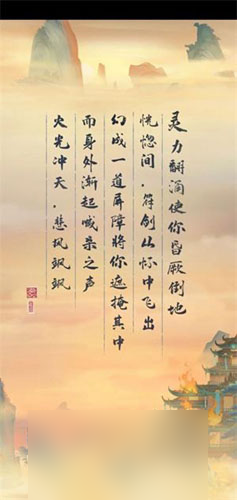 灵力翻涌使你昏厥倒地
恍惚间，符剑从怀中飞出
幻成一道屏障将你遮掩其中
而身外渐起喊杀之声
火光冲天，悲风飒飒